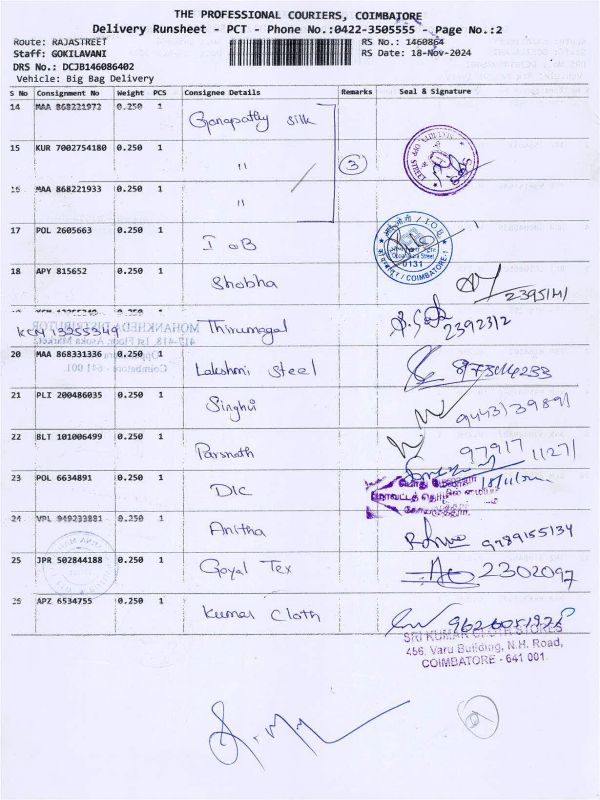 THE PROFESSIONAL COURIERS, COIMBATORE
Delivery Runsheet - PCT - Phone No.:0422-3505555 - Page No.:2
Route: RAJASTREET RS No.: 1460864
Staff: GOKILAVANI RS Date: 18-Nov-2024
DRS No.: DCJB146086402
Vehicle: Big Bag Delivery
S No Consignment No Weight PCS Consignee Details Remarks Seal & Signature
14 MAA 868221972 0.250 1 Ganapathy silk
15 KUR 7002754180 0.250 1 " 3
16 MAA 868221933 0.250 1 "
17 POL 2605663 0.250 1 I o B
0131
COIMBATORE-1
18 APY 815652 0.250 1 Shobha
KCM 13255349 Thirumagal 2392312
20 MAA 868331336 0.250 1 Lakshmi steel
21 PLI 200486035 0.250 1 Singhvi
22 BLT 101006499 0.250 1 Parsnath 97917 11271
23 POL 6634891 0.250 1 DIC
24 VPL 949233881 0.250 1 Anitha 9789155134
25 JPR 502844188 0.250 1 Goyal Tex 2302097
26 APZ 6534755 0.250 1 Kumar Cloth
SRI KUMAR CLOTH STORES
456, Varu Building, N.H. Road,
COIMBATORE - 641 001.